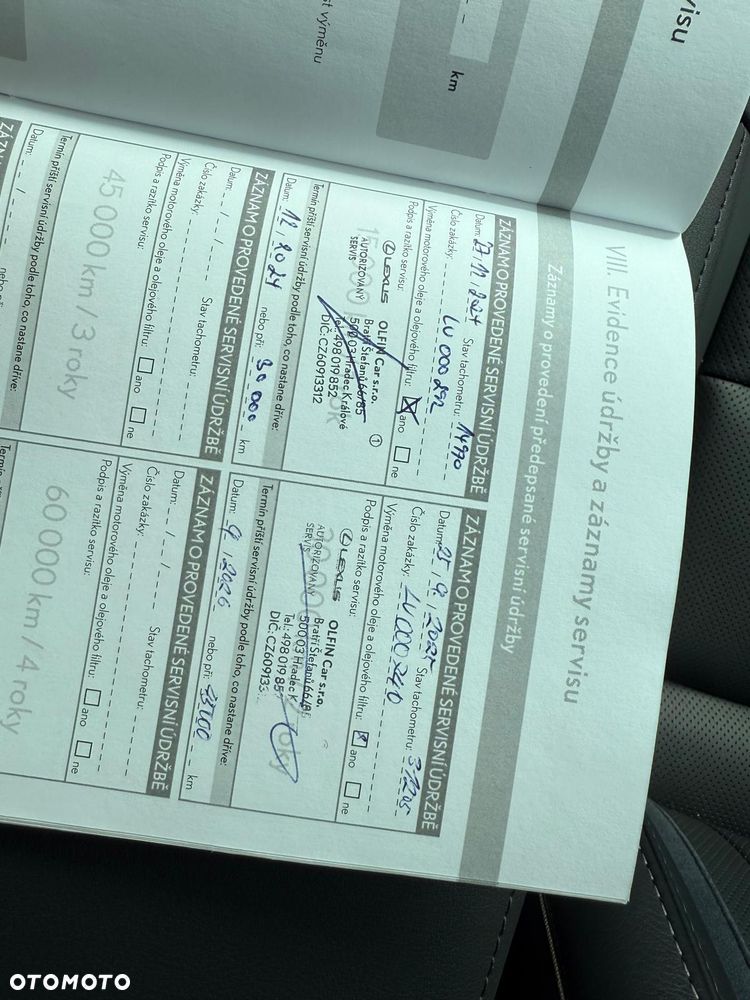 isu
km
st výměnu
VIII. Evidence údržby a záznamy servisu
Záznamy o provedení předepsané servisní údržby
ZÁZNAM O PROVEDENÉ SERVISNÍ ÚDRŽBĚ
Datum: Stav tachometru: 14970
Číslo zakázky: LV000292
Výměna motorového oleje a olejového filtru: ano ne
Podpis a razítko servisu:
LEXUS
AUTORIZOVANÝ
SERVIS
OLFIN Car s.r.o.
Bratří Štefanů 66/85
500 03 Hradec Králové
Tel.: 498 019 852
DIČ: CZ60913312
1
Termín příští servisní údržby podle toho, co nastane dříve:
Datum: 12 / 2024 nebo při: 30 000 km
ZÁZNAM O PROVEDENÉ SERVISNÍ ÚDRŽBĚ
Datum: 25 / 9 / 2025 Stav tachometru: 31205
Číslo zakázky: LV000740
Výměna motorového oleje a olejového filtru: ano ne
Podpis a razítko servisu:
LEXUS
AUTORIZOVANÝ
SERVIS
OLFIN Car s.r.o.
Bratří Štefanů 66/85
500 03 Hradec K
Tel.: 498 019 85
DIČ: CZ60913
Termín příští servisní údržby podle toho, co nastane dříve:
Datum: 9 / 2026 nebo při: km
ZÁZNAM O PROVEDENÉ SERVISNÍ ÚDRŽBĚ
Datum: / / Stav tachometru:
Číslo zakázky:
Výměna motorového oleje a olejového filtru: ano ne
Podpis a razítko servisu:
45 000 km / 3 roky
Termín příští servisní údržby podle toho, co nastane dříve:
Datum: / nebo při:
ZÁZNAM O PROVEDENÉ SERVISNÍ ÚDRŽBĚ
Datum: / / Stav tachometru:
Číslo zakázky:
Výměna motorového oleje a olejového filtru: ano ne
Podpis a razítko servisu:
60 000 km / 4 roky
OTOMOTO